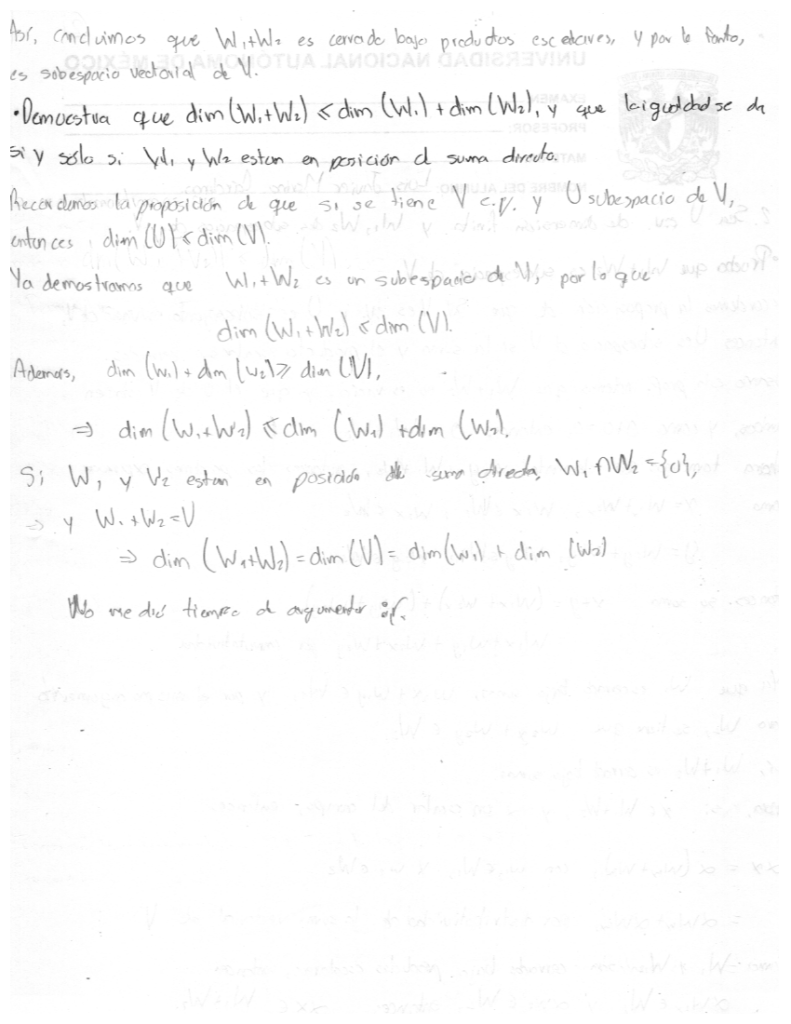 Así, concluimos que W₁+W₂ es cerrado bajo productos escalares, y por lo tanto,
es subespacio vectorial de V.
•Demuestra que dim(W₁+W₂) ≤ dim(W₁) + dim(W₂), y que la igualdad se da
si y sólo si W₁ y W₂ estan en posición d suma directa.
Recordemos la proposición de que si se tiene V e.v. y U subespacio de V,
entonces dim(U) ≤ dim(V).
Ya demostramos que W₁+W₂ es un subespacio de V, por lo que
dim(W₁+W₂) ≤ dim(V).
Además, dim(W₁) + dim(W₂) ≥ dim(V),
⇒ dim(W₁+W₂) ≤ dim(W₁) + dim(W₂).
Si W₁ y V₂ estan en posición suma directa, W₁∩W₂={0},
⇒ y W₁+W₂=V
⇒ dim(W₁+W₂)=dim(V)=dim(W₁) + dim(W₂)
No me dió tiempo d argumentar :(.